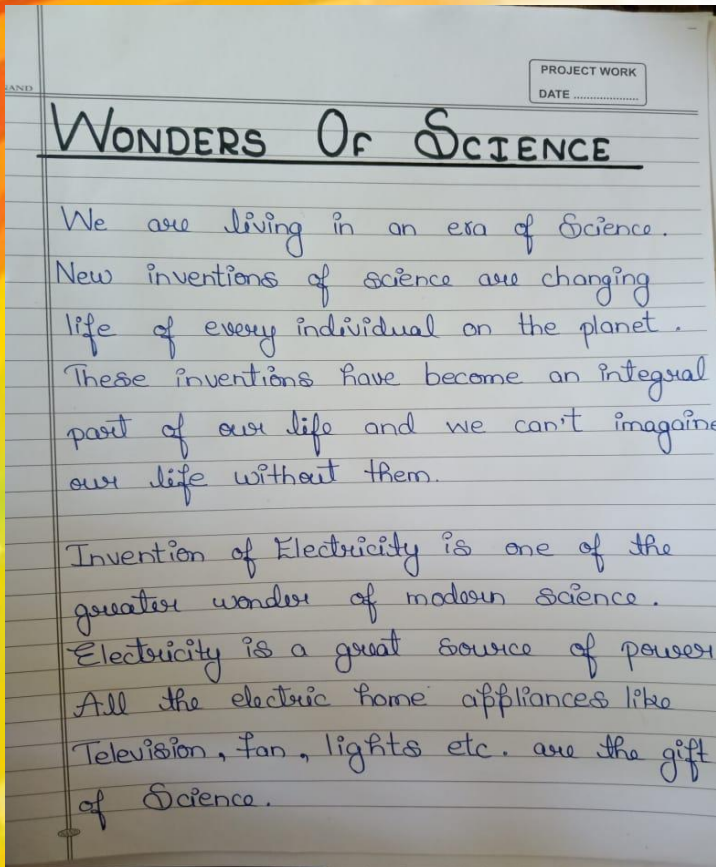 PROJECT WORK
DATE ....................
WONDERS OF SCIENCE
We are living in an era of Science.
New inventions of science are changing
life of every individual on the planet.
These inventions have become an integral
part of our life and we can't imagaine
our life without them.
Invention of Electricity is one of the
greater wonder of modern science.
Electricity is a great source of power
All the electric home appliances like
Television, fan, lights etc. are the gift
of Science.